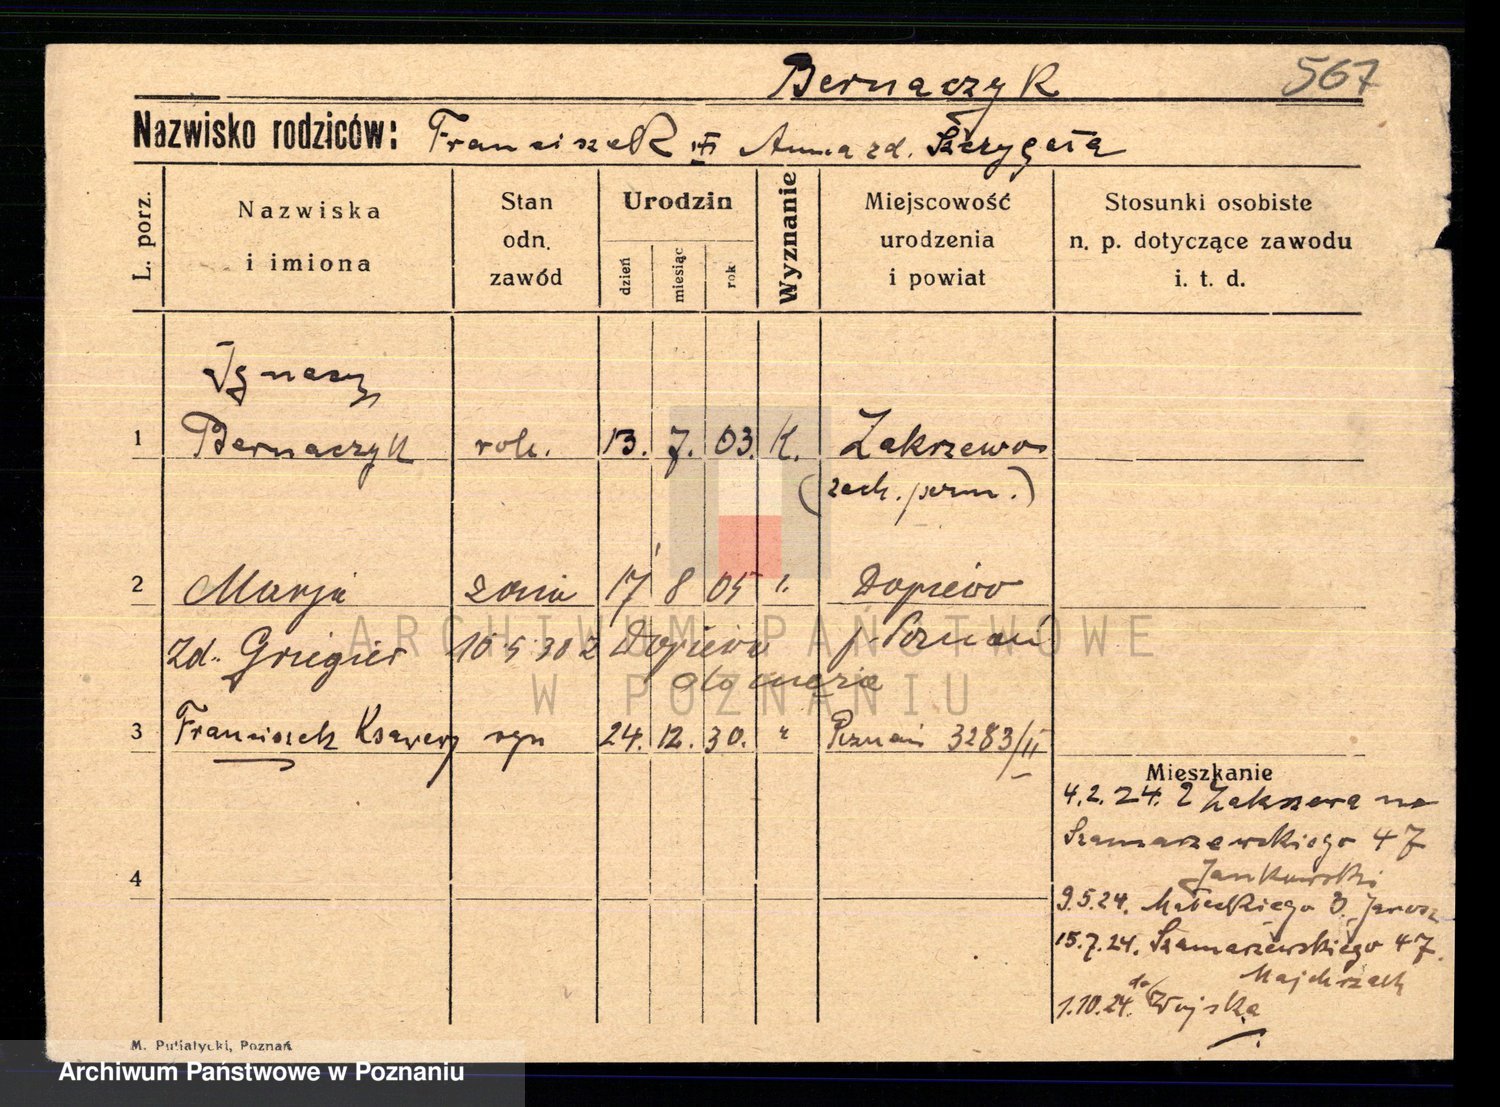 Bernaczyk
567
Nazwisko rodziców: Franciszek Anna zd.
L. porz.
Nazwiska i imiona
Stan odn. zawód
Urodzin
dzień
miesiąc
rok
Wyznanie
Miejscowość urodzenia i powiat
Stosunki osobiste n. p. dotyczące zawodu i. t. d.
Ignacy
1 Bernaczyk rob. 13. 7. 03. K. Zakrzewo
(zach. pom.)
2 Marja żona 17 8 05 Dopiewo
zd. Griegier 10 5 30 z Dopiewa p. Poznań
do męża
3 Franciszek Ksawery syn 24. 12. 30. " Poznań 3283/II
Mieszkanie
4.2.24. z Zakrzewa na
Szamarzewskiego 47
Jankowski
4
9.5.24. Małeckiego 3. Jarosz
15.7.24. Szamarzewskiego 47.
Majchrzak
1.10.24. do Wojska
M. Putiatycki, Poznań
ARCHIWUM PAŃSTWOWE
W POZNANIU
Archiwum Państwowe w Poznaniu